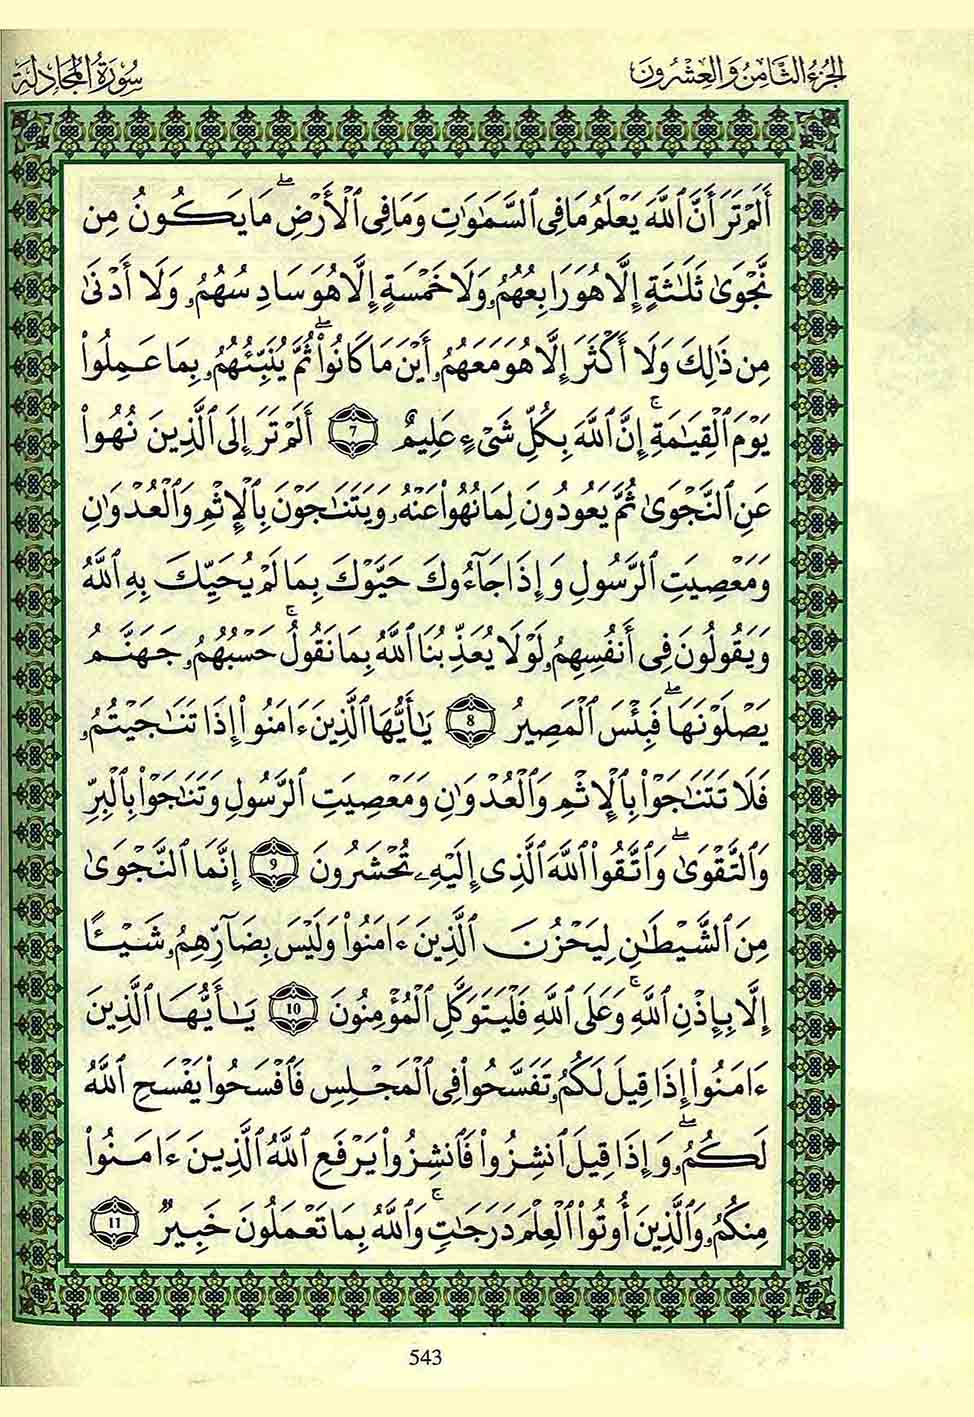 الجُزْءُ الثَّامِنُ وَالعِشْرُونَ
سُورَةُ المُجَادِلَة
أَلَمْ تَرَ أَنَّ ٱللَّهَ يَعْلَمُ مَا فِى ٱلسَّمَٰوَٰتِ وَمَا فِى ٱلْأَرْضِۖ مَا يَكُونُ مِن
نَّجْوَىٰ ثَلَٰثَةٍ إِلَّا هُوَ رَابِعُهُمُۥ وَلَا خَمْسَةٍ إِلَّا هُوَ سَادِسُهُمُۥ وَلَا أَدْنَىٰ
مِن ذَٰلِكَ وَلَا أَكْثَرَ إِلَّا هُوَ مَعَهُمُۥ أَيْنَ مَا كَانُواْۖ ثُمَّ يُنَبِّئُهُمُۥ بِمَا عَمِلُواْ
يَوْمَ ٱلْقِيَٰمَةِۚ إِنَّ ٱللَّهَ بِكُلِّ شَىْءٍ عَلِيمٌ 7 أَلَمْ تَرَ إِلَى ٱلَّذِينَ نُهُواْ
عَنِ ٱلنَّجْوَىٰ ثُمَّ يَعُودُونَ لِمَا نُهُواْ عَنْهُۥ وَيَتَنَٰجَوْنَ بِٱلْإِثْمِ وَٱلْعُدْوَٰنِ
وَمَعْصِيَتِ ٱلرَّسُولِ وَإِذَا جَآءُوكَ حَيَّوْكَ بِمَا لَمْ يُحَيِّكَ بِهِ ٱللَّهُ
وَيَقُولُونَ فِى أَنفُسِهِمُۥ لَوْلَا يُعَذِّبُنَا ٱللَّهُ بِمَا نَقُولُۚ حَسْبُهُمُۥ جَهَنَّمُ
يَصْلَوْنَهَاۖ فَبِئْسَ ٱلْمَصِيرُ 8 يَٰأَيُّهَا ٱلَّذِينَ ءَامَنُواْ إِذَا تَنَٰجَيْتُمُۥ
فَلَا تَتَنَٰجَوْاْ بِٱلْإِثْمِ وَٱلْعُدْوَٰنِ وَمَعْصِيَتِ ٱلرَّسُولِ وَتَنَٰجَوْاْ بِٱلْبِرِّ
وَٱلتَّقْوَىٰۖ وَٱتَّقُواْ ٱللَّهَ ٱلَّذِى إِلَيْهِۦ تُحْشَرُونَ 9 إِنَّمَا ٱلنَّجْوَىٰ
مِنَ ٱلشَّيْطَٰنِ لِيَحْزُنَ ٱلَّذِينَ ءَامَنُواْ وَلَيْسَ بِضَآرِّهِمُۥ شَيْـًٔا
إِلَّا بِإِذْنِ ٱللَّهِۚ وَعَلَى ٱللَّهِ فَلْيَتَوَكَّلِ ٱلْمُؤْمِنُونَ 10 يَٰأَيُّهَا ٱلَّذِينَ
ءَامَنُواْ إِذَا قِيلَ لَكُمُۥ تَفَسَّحُواْ فِى ٱلْمَجْلِسِ فَٱفْسَحُواْ يَفْسَحِ ٱللَّهُ
لَكُمُۥۖ وَإِذَا قِيلَ ٱنشِزُواْ فَٱنشِزُواْ يَرْفَعِ ٱللَّهُ ٱلَّذِينَ ءَامَنُواْ
مِنكُمُۥ وَٱلَّذِينَ أُوتُواْ ٱلْعِلْمَ دَرَجَٰتٍۚ وَٱللَّهُ بِمَا تَعْمَلُونَ خَبِيرٌ 11
543